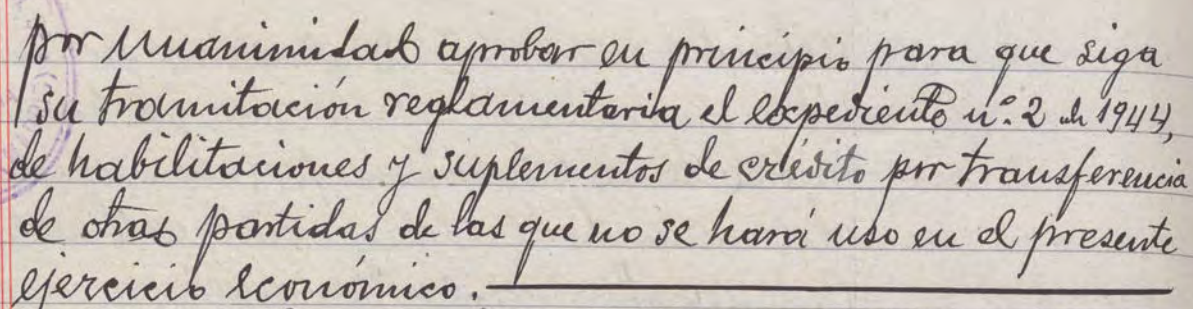 por unanimidad aprobar en principio para que siga
su tramitación reglamentaria el expediente n.º 2 de 1944,
de habilitaciones y suplementos de crédito por transferencia
de otras partidas de las que no se hará uso en el presente
ejercicio económico.